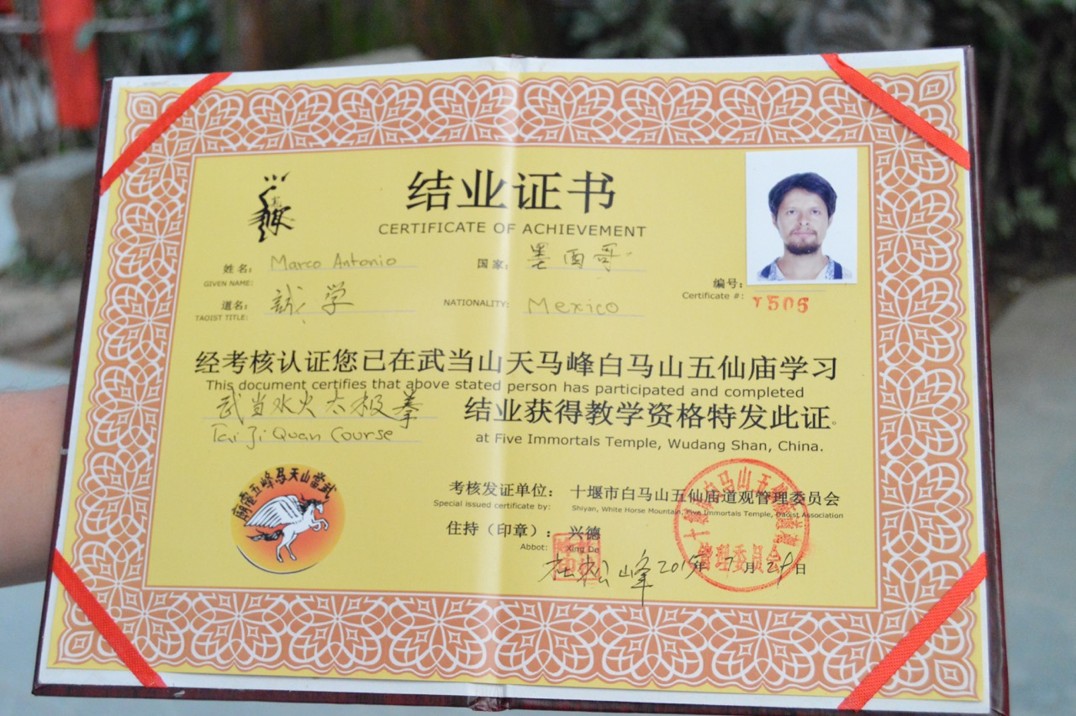 结业证书
CERTIFICATE OF ACHIEVEMENT
姓名: Marco Antonio 国家: 墨西哥
GIVEN NAME:
道名: 学 NATIONALITY: Mexico
TAOIST TITLE:
编号:
Certificate #: 1506
经考核认证您已在武当山天马峰白马山五仙庙学习
This document certifies that above stated person has participated and completed
武当水火太极拳 结业获得教学资格特发此证。
Tai Ji Quan Course at Five Immortals Temple, Wudang Shan, China.
武当山天马峰五仙庙
考核发证单位: 十堰市白马山五仙庙道观管理委员会
Special issued certificate by: Shiyan, White Horse Mountain, Five Immortals Temple, Daoist Association
住持（印章）: 兴德
Abbot: Xing De
松峰 2015年7月29日
管理委员会